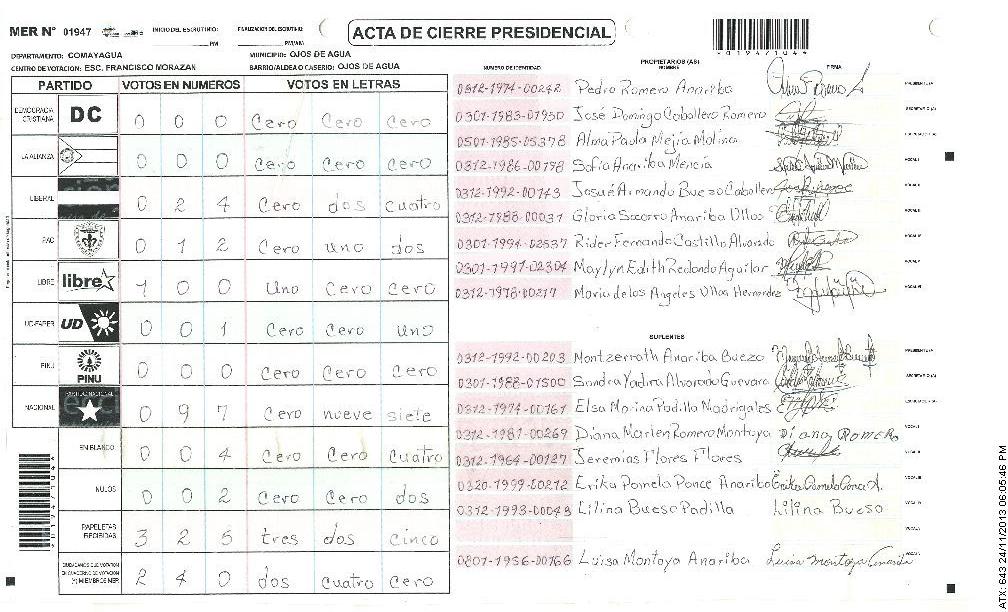 MER Nº 01947 INICIO DEL ESCRUTINIO: PM FINALIZACION DEL ESCRUTINIO: PM/AM ACTA DE CIERRE PRESIDENCIAL
DEPARTAMENTO: COMAYAGUA MUNICIPIO: OJOS DE AGUA
CENTRO DE VOTACION: ESC. FRANCISCO MORAZAN BARRIO/ALDEA O CASERIO: OJOS DE AGUA
PARTIDO VOTOS EN NUMEROS VOTOS EN LETRAS
DEMOCRACIA CRISTIANA DC 0 0 0 Cero Cero Cero
LA ALIANZA 0 0 0 Cero Cero Cero
LIBERAL 0 2 4 Cero dos cuatro
PAC 0 1 2 Cero uno dos
LIBRE libre 1 0 0 Uno Cero Cero
UD-FAPER UD 0 0 1 Cero Cero uno
PINU PINU 0 0 0 Cero Cero Cero
NACIONAL 0 9 7 Cero nueve siete
EN BLANCO 0 0 4 Cero Cero cuatro
NULOS 0 0 2 Cero Cero dos
PAPELETAS RECIBIDAS 3 2 5 tres dos cinco
CIUDADANOS QUE VOTARON 2 4 0 dos cuatro cero
PROPIETARIOS (AS)
NUMERO DE IDENTIDAD NOMBRE FIRMA
0312-1974-00242 Pedro Romero Anariba
0301-1983-01950 José Domingo Caballero Romero
0501-1985-05378 Alma Paola Mejia Molina
0312-1986-00198 Sofia Anariba Mencia
0312-1992-00143 Josué Armando Buezo Caballero
0312-1988-00031 Gloria Socorro Anariba Ulloa
0301-1994-02537 Rider Fernando Castillo Alvarado
0301-1997-02304 Maylyn Edith Redondo Aguilar
0312-1978-00217 Maria de los Angeles Ulloa Hernandez
SUPLENTES
0312-1992-00203 Montzerrath Anariba Buezo
0301-1988-01500 Sandra Yadira Alvarado Guevara
0312-1974-00161 Elsa Marina Padilla Madrigales
0312-1981-00269 Diana Marlen Romero Montoya Diana ROMERO
0312-1964-00127 Jeremias Flores Flores
0320-1999-00212 Erika Pamela Ponce Anariba Erika Pamela Ponce A.
0312-1993-00043 Lilina Bueso Padilla Lilina Bueso
0801-1956-00766 Luisa Montoya Anariba Luisa montoya Anariba
01947/1044
ATX: 643 24/11/2013 06:05:46 PM